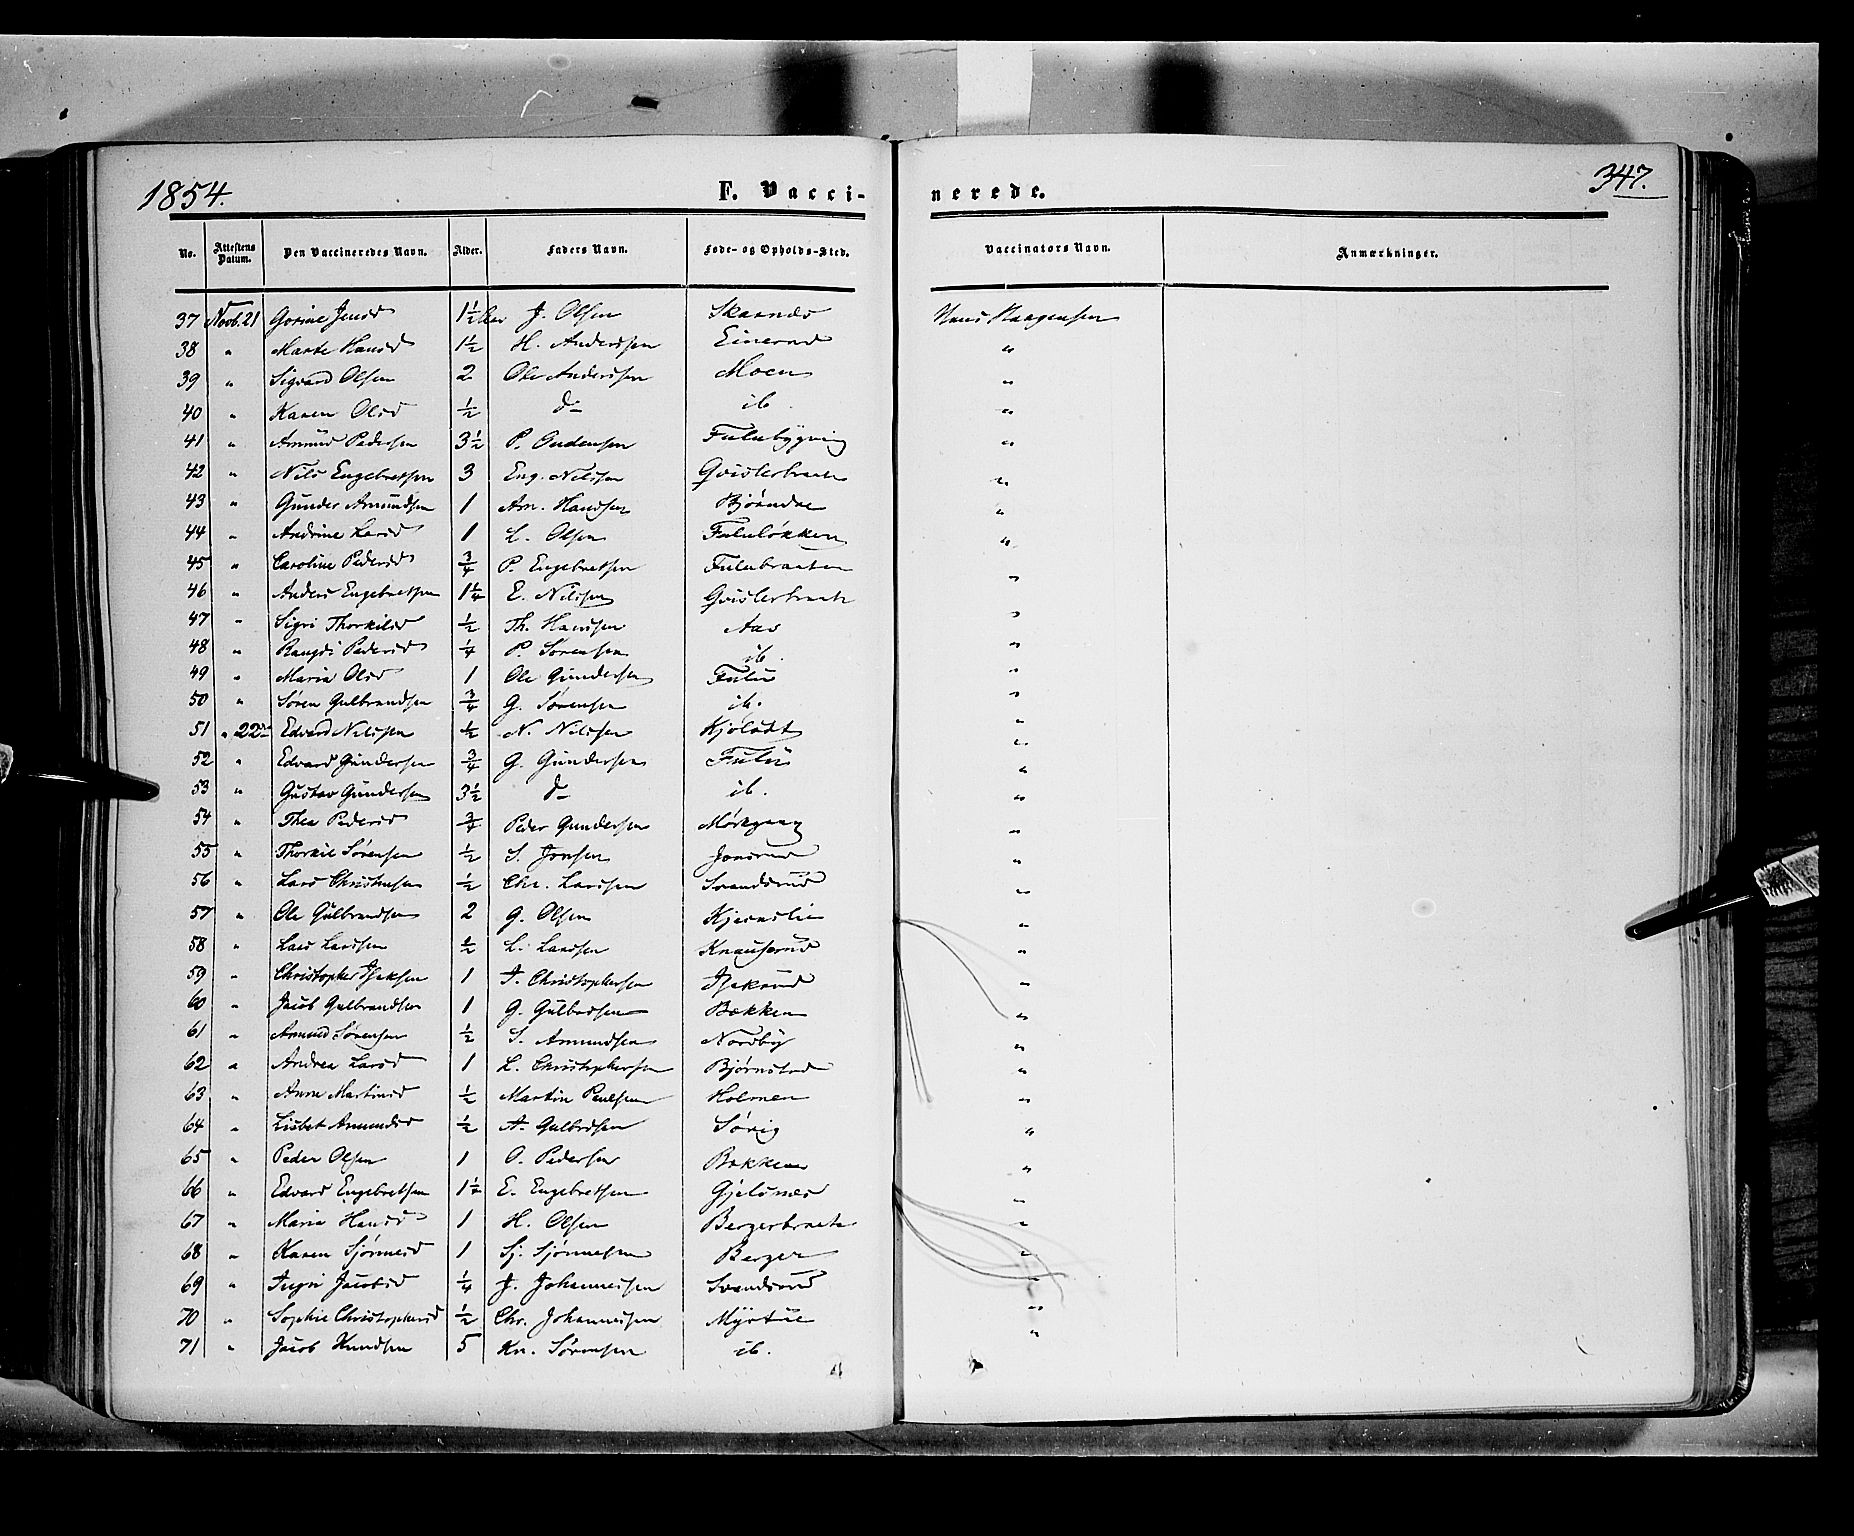 1854. F. Vacci- nerede. 347.
No. Attestens Datum. Den Vaccineredes Navn. Alder. Faders Navn. Føde- og Opholds-Sted. Vaccinators Navn. Anmærkninger.
37 Novb. 21 Gorine Jensd 1½ Aar J. Olsen Skaanæs Hans Haagensen
38 " Marte Hansd 1½ H. Andersen Einerud "
39 " Sigvard Olsen 2 Ole Andersen Moen "
40 " Karen Olsd ½ do ib. "
41 " Amund Pedersen 3½ P. Audensen Fulubygning "
42 " Nils Engebretsen 3 Eng. Nilssen Gvislerbraate "
43 " Gunder Amundsen 1 Am. Hansen "
44 " Andrine Larsd 1 L. Olsen Fululøkken "
45 " Caroline Pedersd ¾ P. Engebretsen Fulubraaten "
46 " Anders Engebretsen 1¼ E. Nilssen Gvislerbraate "
47 " Sigri Thorkilsd ½ Th. Hanssen Aas "
48 " Rangdi Pedersd ¼ P. Sørensen ib. "
49 " Maria Olsd 1 Ole Gundersen Fulu "
50 " Søren Gulbrandsen ¾ G. Sørensen ib. "
51 " 22de Edvard Nilssen ½ N. Nilssen "
52 " Edvard Gundersen ¾ G. Gundersen Fulu "
53 " Gustav Gundersen 3½ do ib. "
54 " Thea Pedersd ¾ Peder Gundersen Mørkgang "
55 " Thorkil Sørensen ½ S. Jonsen Jonsrud "
56 " Lars Christensen ½ Chr. Larssen Svendsrud "
57 " Ole Gulbrandsen 2 G. Olsen Kjernslie "
58 " Lars Larssen ½ L. Larssen Knauserud "
59 " Christopher Isaksen 1 I. Christophersen Isakrud "
60 " Jacob Gulbrandsen 1 G. Gulbrdsen Bækken "
61 " Amund Sørensen ½ S. Amundsen Nordby "
62 " Andrea Larsd 1 L. Christophersen Bjørnstad "
63 " Anne Martinsd ½ Martin Paulsen Holmen "
64 " Lisbet Amundsd ½ A. Gulbrdsen Sørig "
65 " Peder Olsen 1 O. Pedersen Bakkene "
66 " Edvard Engebretsen 1¼ E. Engebretsen Gjelsnes "
67 " Maria Hansd 1 H. Olsen Bergerbraate "
68 " Karen Sjønnesd 1 Sj. Sjønnesen Berger "
69 " Ingri Jacobsd ¼ J. Johannessen Svendsrud "
70 " Sophie Christophersd ½ Chr. Johannessen Myrtue "
71 " Jacob Knudsen 5 Kn. Sørensen ib. "